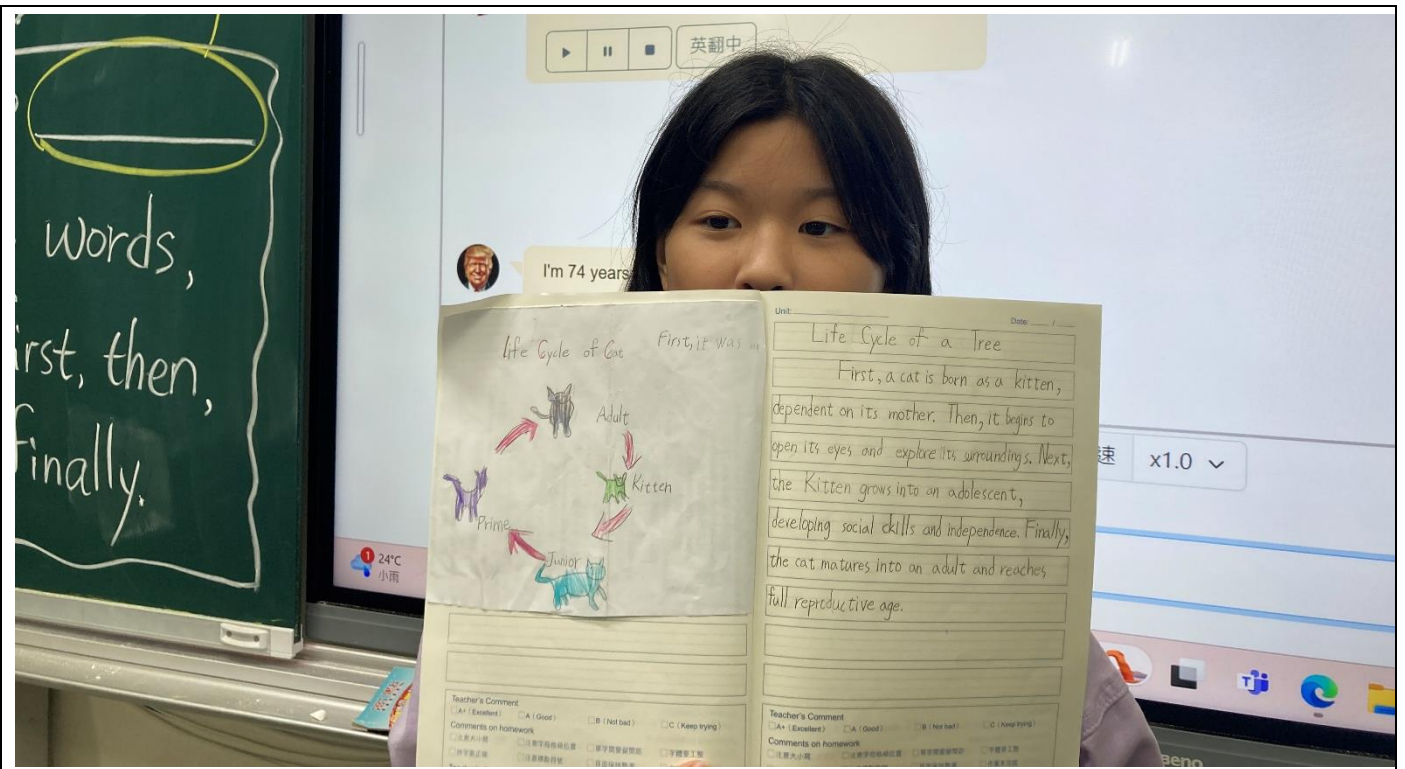 words,
first, then,
finally.
英翻中
I'm 74 years
速
x1.0
1
24°C
小雨
Life Cycle of Cat
First, it was
Adult
Kitten
Junior
Prime
Unit:
Date: /
Life Cycle of a Tree
First, a cat is born as a kitten,
dependent on its mother. Then, it begins to
open its eyes and explore its surroundings. Next,
the Kitten grows into an adolescent,
developing social ckills and independence. Finally,
the cat matures into an adult and reaches
full reproductive age.
Teacher's Comment
□A+ (Excellent) □A (Good) □B (Not bad) □C (Keep trying)
Comments on homework
□注意大小寫
Teacher's Comment
□A+ (Excellent) □A (Good) □B (Not bad) □C (Keep trying)
Comments on homework
□注意大小寫
BenQ